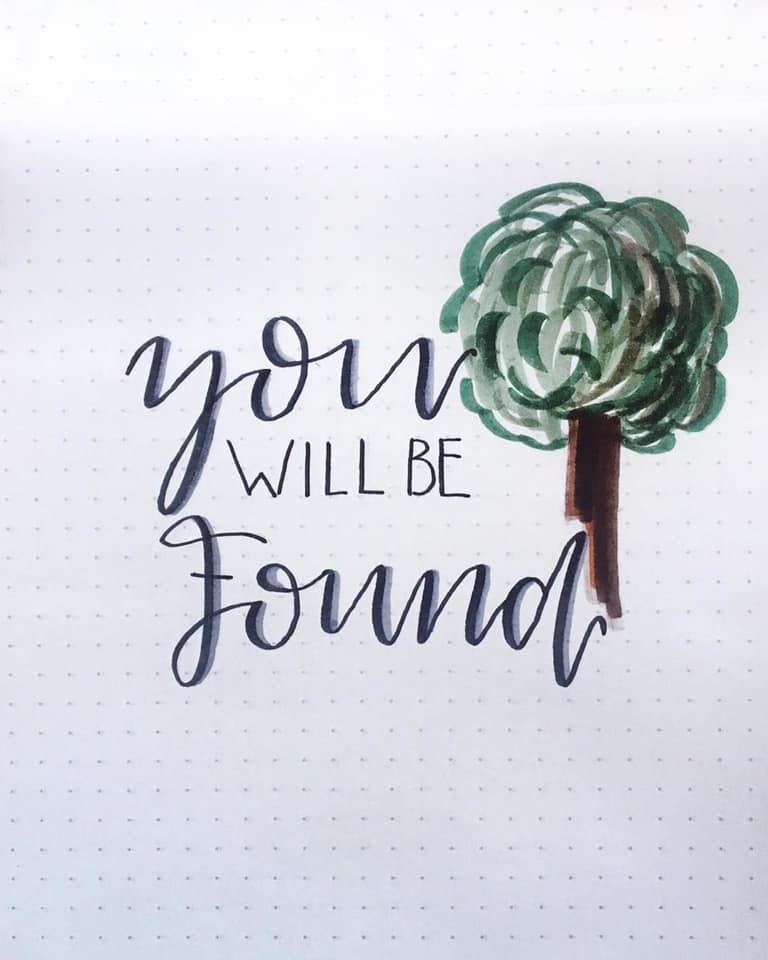 you
WILL BE
Found